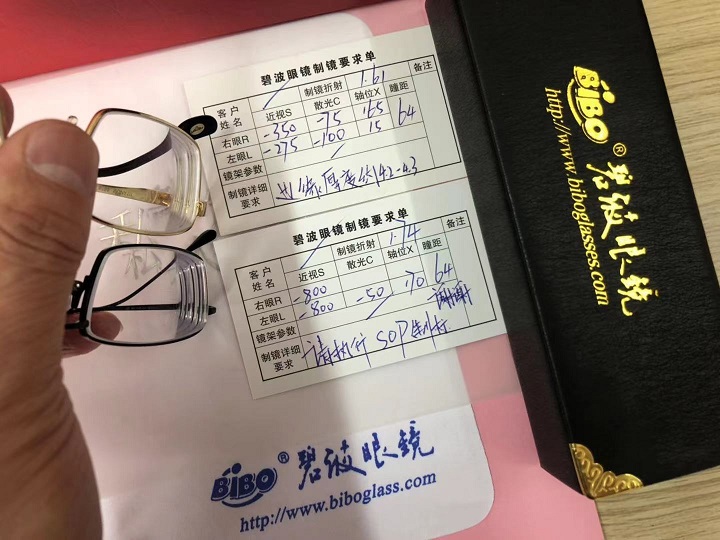 碧波眼镜制镜要求单
客户姓名 制镜折射 1.61 备注
近视S 散光C 轴位X 瞳距
右眼R -350 -75 165 64
左眼L -275 -100 15
镜架参数
制镜详细要求
碧波眼镜制镜要求单
客户姓名 制镜折射 1.74 备注
近视S 散光C 轴位X 瞳距
右眼R -800 64
左眼L -800 -50 70
镜架参数 谢谢
制镜详细要求 请执行SOP制折
BiBO® 碧波眼镜
http://www.biboglass.com
BiBO® 碧波眼镜
http://www.biboglasses.com